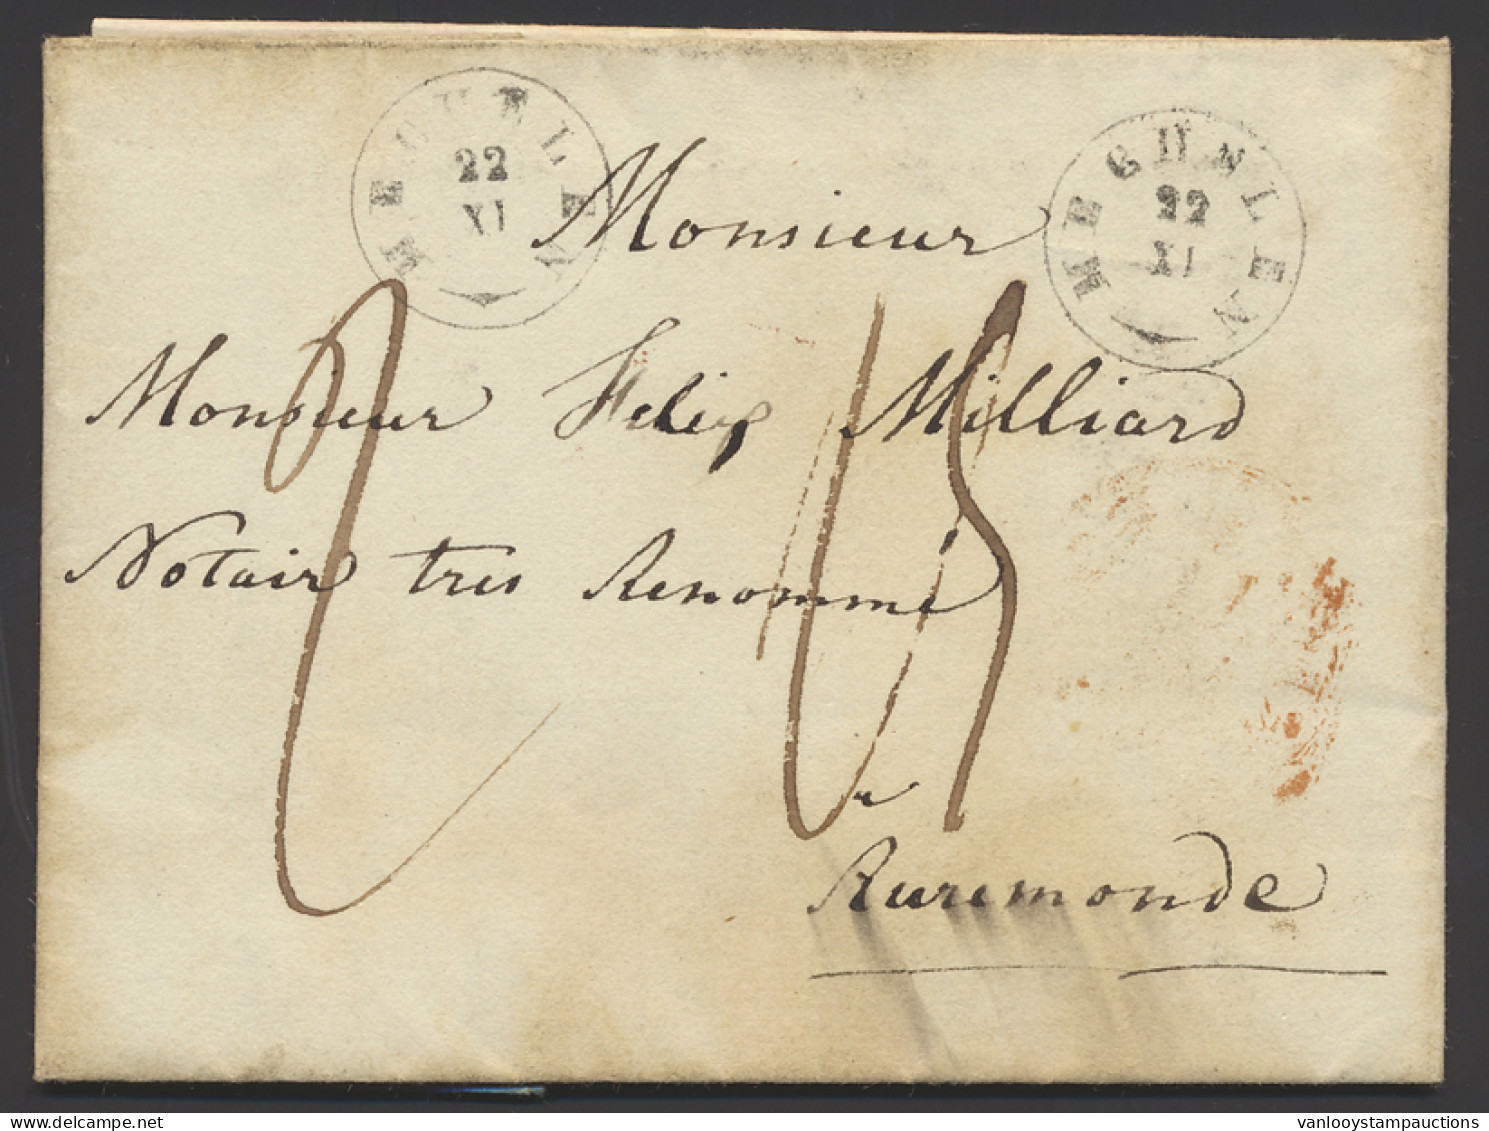 MECHELEN
22
XI
MECHELEN
22
XI
Monsieur
Monsieur Felix Milliard
Notair tres Renommé
a
Ruremonde
vanlooystampauctions